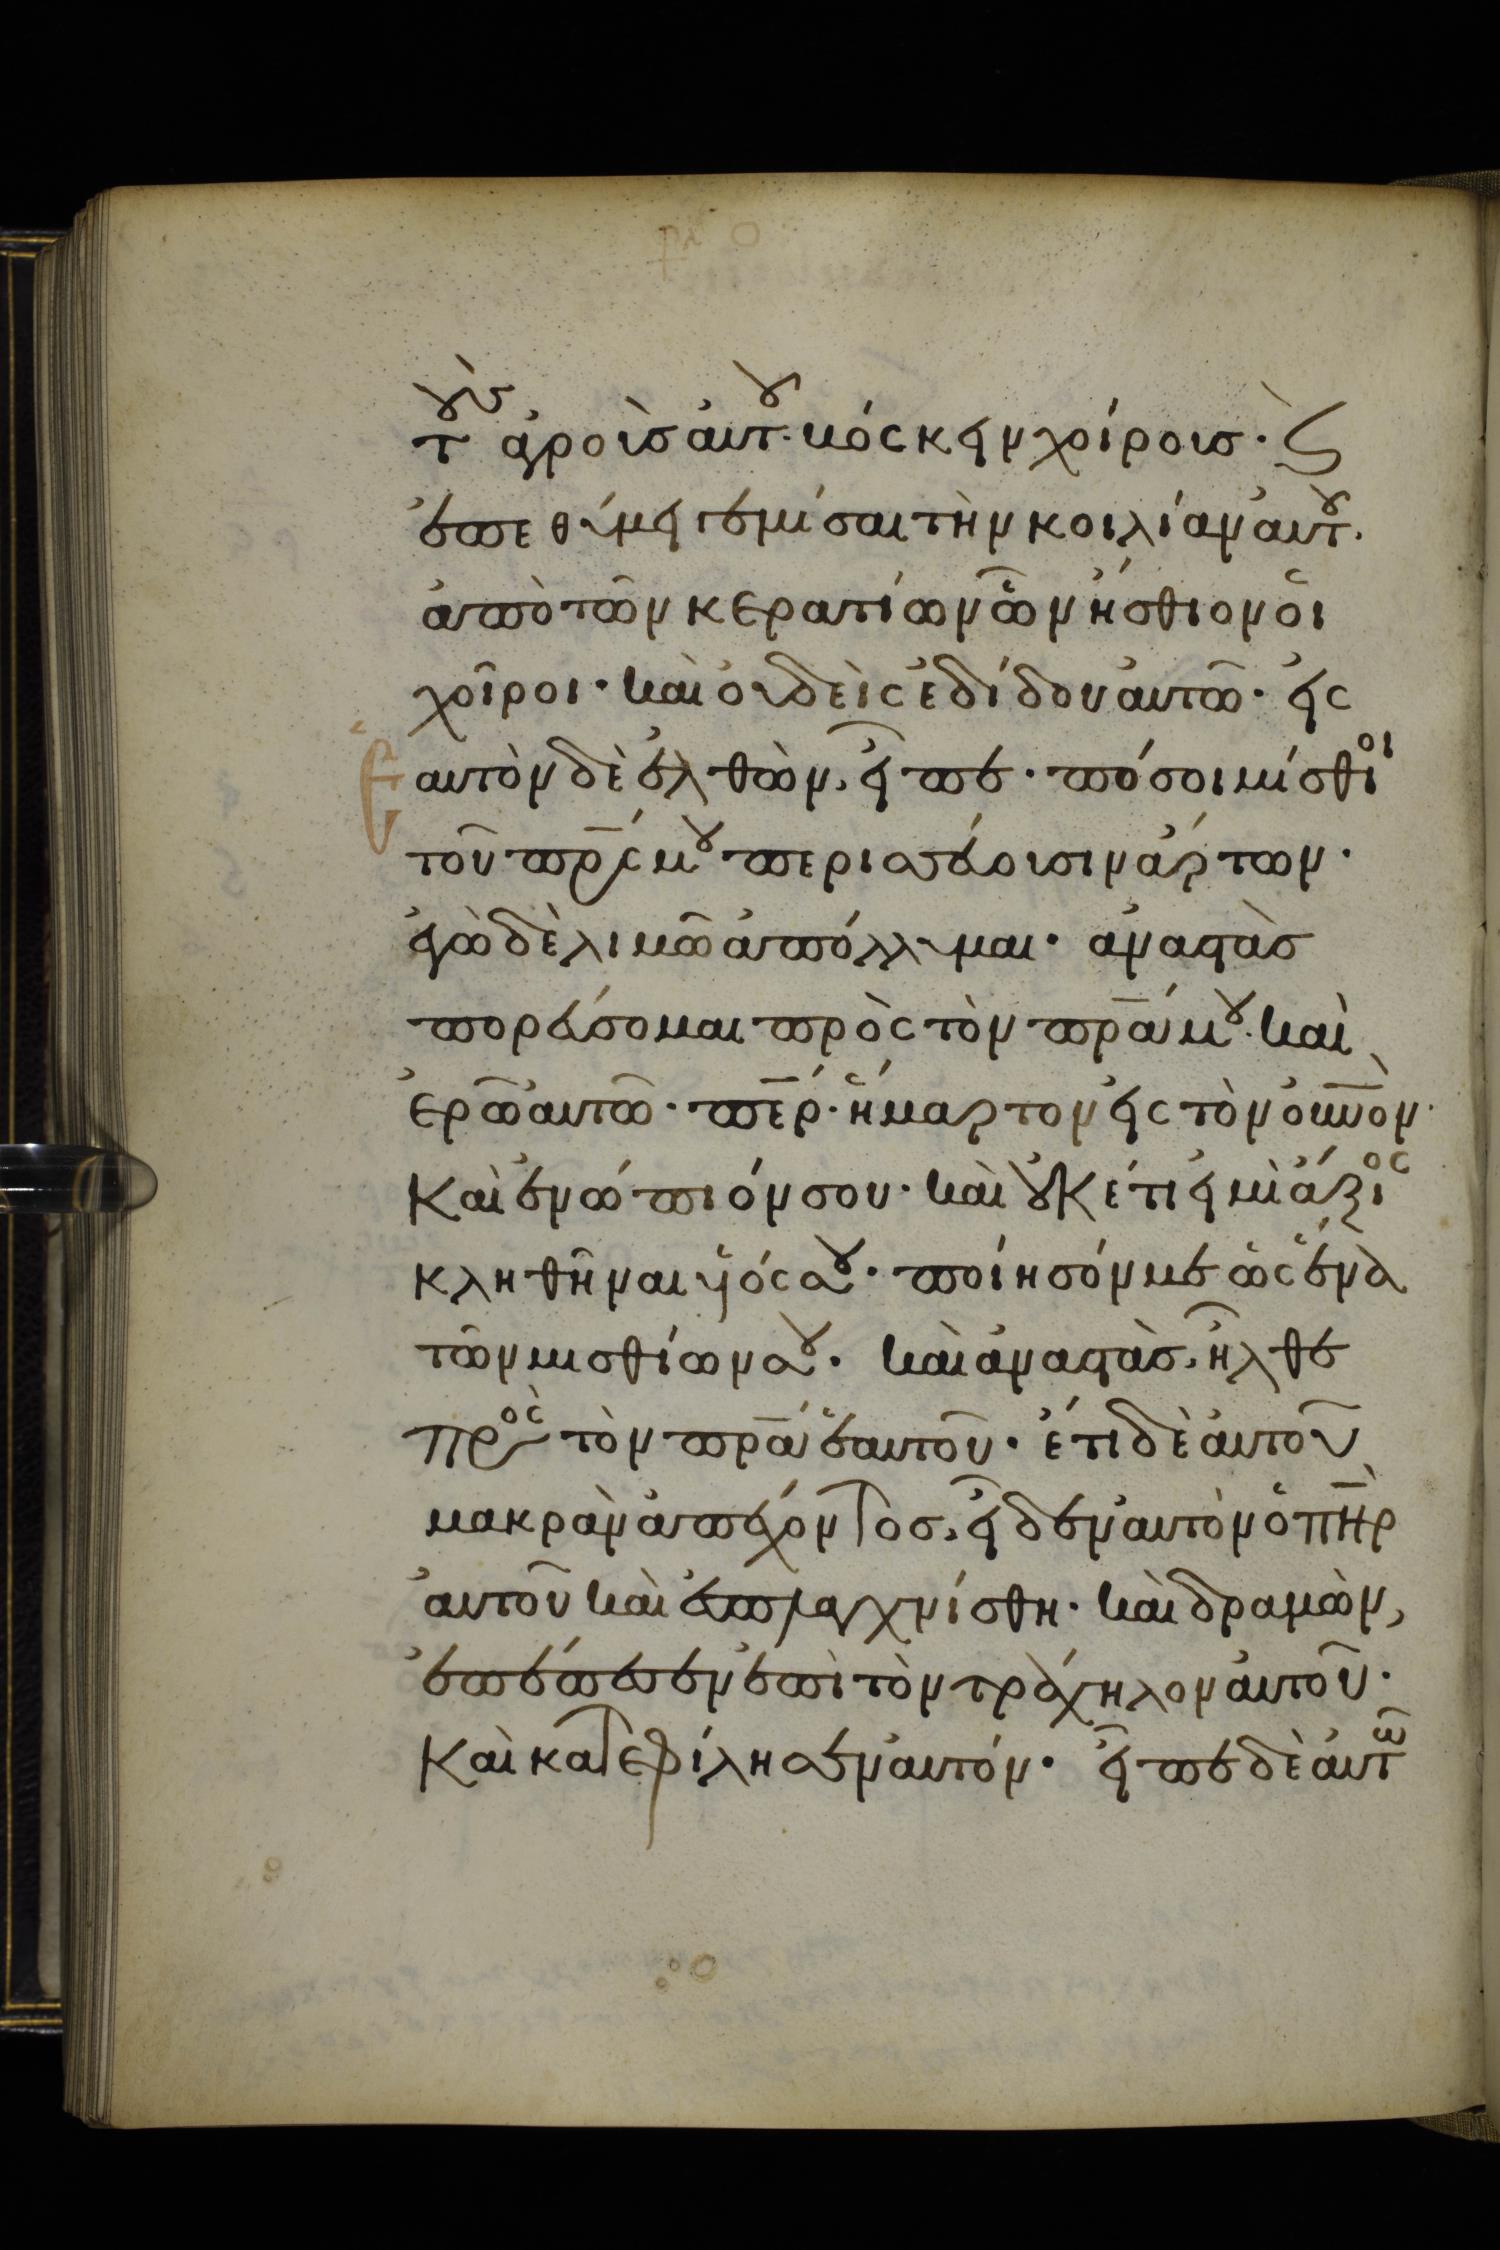 τοὺς ἀγροὺς αὐτοῦ βόσκειν χοίροις· καὶ
ἐπεθύμει γεμίσαι τὴν κοιλίαν αὐτοῦ.
ἀπὸ τῶν κερατίων ὧν ἤσθιον οἱ
χοῖροι· καὶ οὐδεὶς ἐδίδου αὐτῶ· εἰς
ἑαυτὸν δὲ ἐλθὼν, εἶπε· πόσοι μίσθιοι
τοῦ πρ̅ς μου περισσεύουσιν ἄρτων·
ἐγὼ δὲ λιμῶ ἀπόλλυμαι· ἀναστὰς
πορεύσομαι πρὸς τὸν πρ̅α μου· καὶ
ἐρῶ αὐτῶ· πε̅ρ· ἥμαρτον εἰς τὸν οὐν̅ὸν·
Καὶ ἐνώπιόν σου· καὶ οὐκέτι εἰμὶ ἄξιος
κληθῆναι υἱός σου· ποίησόν με ὡς ἕνα
τῶν μισθίων σου· καὶ ἀναστὰς, ἦλθε
πρὸς τὸν πρ̅α ἑαυτοῦ· ἔτι δὲ αὐτοῦ
μακρὰν ἀπέχοντος, εἶδεν αὐτὸν ὁ πη̅ρ
αὐτοῦ καὶ ἐσπλαγχνίσθη· καὶ δραμὼν,
ἐπέπεσεν ἐπὶ τὸν τράχηλον αὐτοῦ·
Καὶ κατεφίλησεν αὐτόν· εἶπε δὲ αὐτῶ